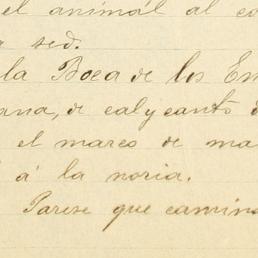 el animál al co
sed.
la Boca de los Em
ana, de cal y canto
el marco de ma
á la noria.
Parese que camina